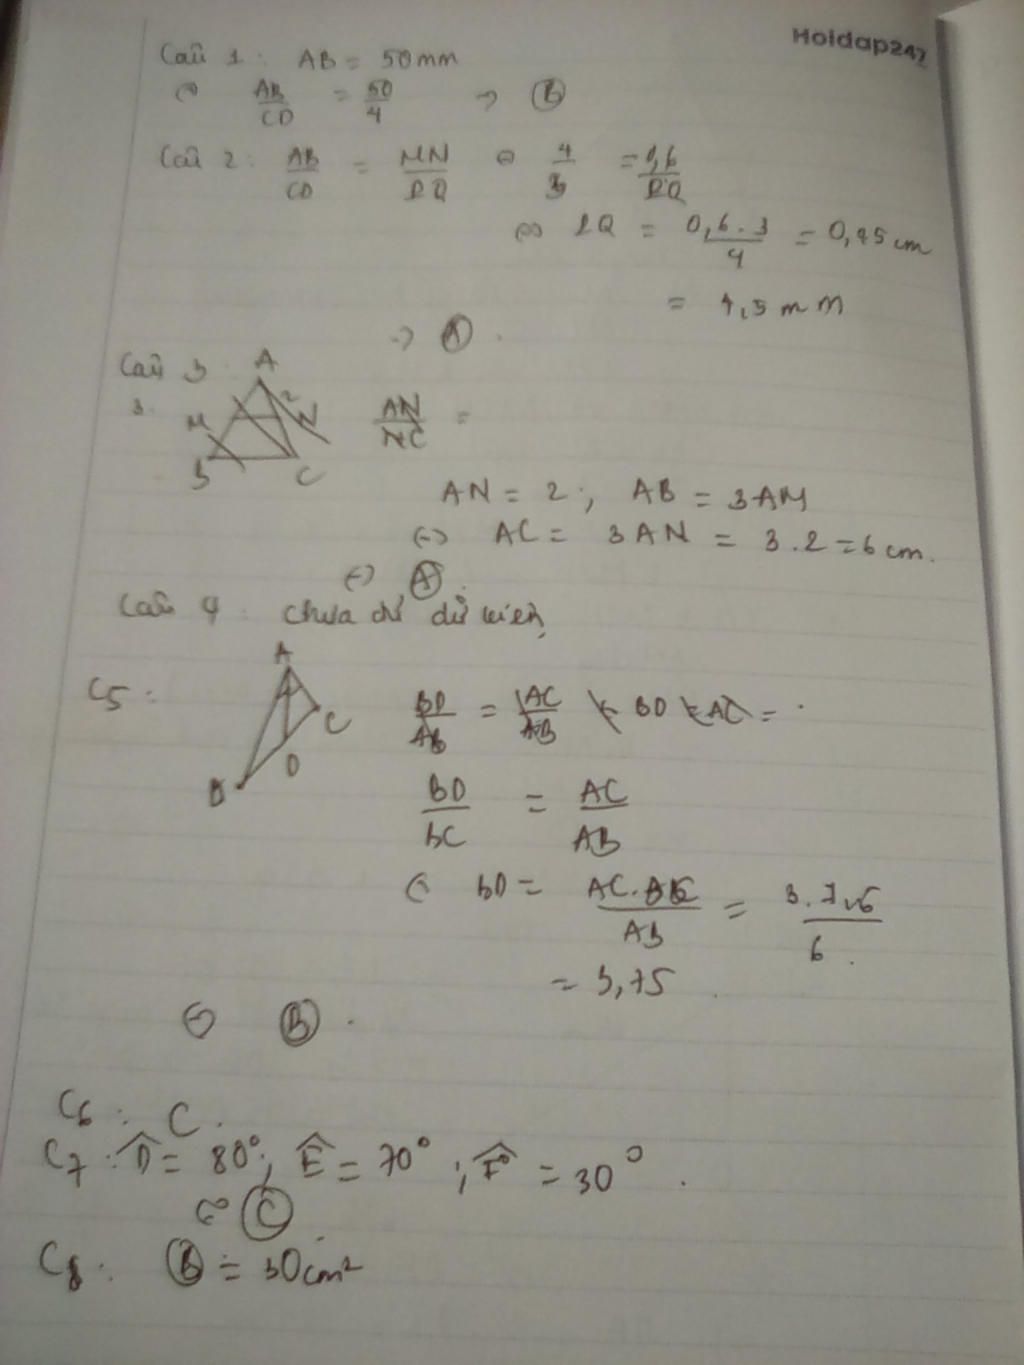 Hoidap247
Câu 1: AB = 50mm
AB/CD = 50/4 → B
Câu 2: AB/CD = MN/PQ ⇔ 4/3 = 0,6/PQ
⇔ PQ = 0,6.3/4 = 0,45 cm
= 4,5 mm
→ A.
Câu 3
A
3. M 2 N AN/NC =
B C
AN = 2; AB = 3AM
⇔ AC = 3AN = 3.2 = 6 cm.
⇔ A.
Câu 4: Chưa đủ dữ kiện
A
C5: BD/AB = AC/AB BD AC = .
C
D
B
BD/BC = AC/AB
BD = AC.BC/AB = 3.7,5/6.
= 3,75
B.
C6: C.
C7: D̂ = 80°; Ê = 70°; F̂ = 30°.
C
C8: B = 30cm²